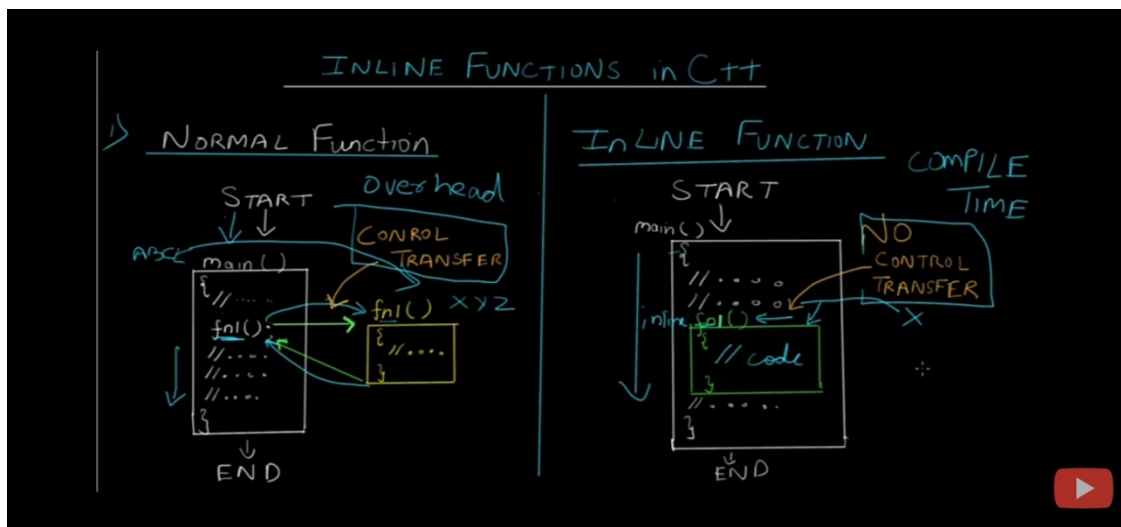 INLINE FUNCTIONS in C++
1) NORMAL Function
Overhead
START
CONROL
TRANSFER
main()
{
//.....
fn1();
//....
//....
//....
}
END
fn1()
XYZ
{
//....
}
INLINE FUNCTION
COMPILE
TIME
START
main()
{
//....
//....
inline fn1()
{
// code
}
//.....
}
END
NO
CONTROL
TRANSFER
X